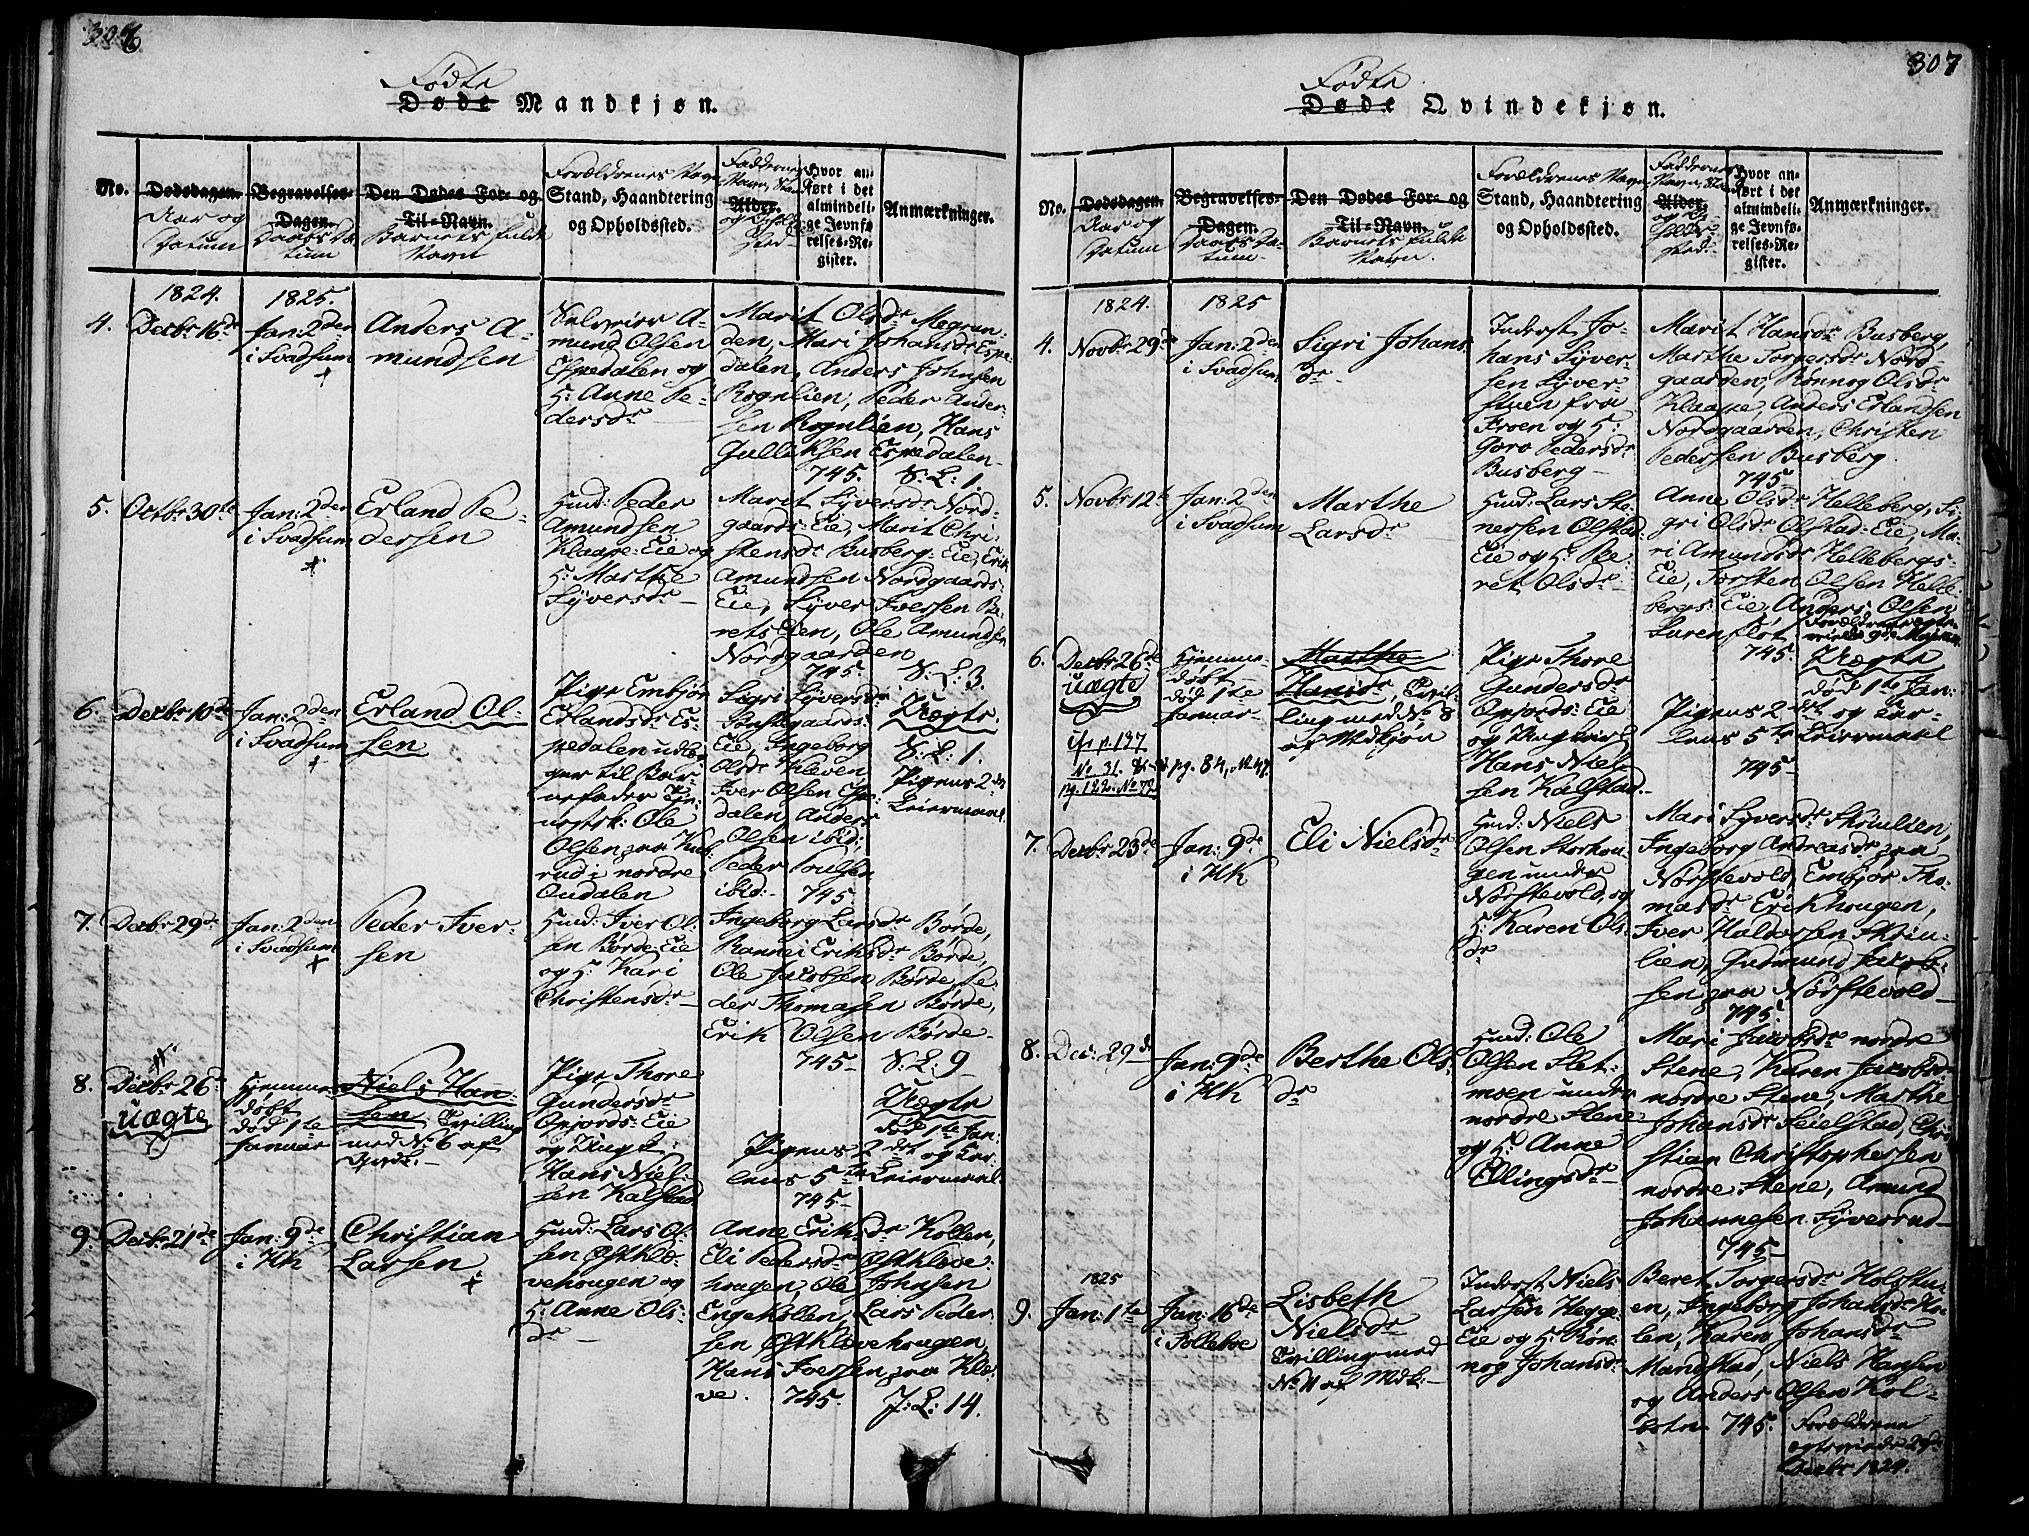 306
Fødte
Døde Mandkjøn.
No.
Dødsdagen.
Aar og
Datum
Begravelses-
Dagen.
Daabs Da-
tum
Den Dødes For- og
Til-Navn.
Barnets fulde
Navn
Forældrenes Navn
Stand, Haandtering
og Opholdssted.
Faddernes
Navn, Stand
Alder.
og Opholds-
sted
Hvor an-
ført i det
almindeli-
ge Jevnfø-
relses-Re-
gister.
Anmærkninger.
1824.
1825.
4.
Decbr 16de
Jan: 2den
i Svadsum
+
Anders A-
mundsen
Selveier A-
mund Olsen
Espedalen og
H: Anne Pe-
dersdr
Marit Olsdr Megrun-
den, Mari Johansdr Espe-
dalen, Anders Johnsen
Rognlien, Peder Ander-
sen Rognlien, Hans
Gulliksen Espedalen
745.
S: L: 1.
5.
Octbr 30te
Jan: 2den
i Svadsum
+
Erland Pe-
dersen
Huusmd: Peder
Amundsen
Klaape: Eie og
H: Marthe
Syversdr
Marit Syversdr Nord-
gaards: Eie, Marit Chri-
stensdr Busberg: Eie, Erik
Amundsen Nordgaards-
Eie, Syver Iversen Be-
rets Den, Ole Amundsen
Nordgaarden
745.
S: L: 3.
6.
Decbr 10de
Jan: 2den
i Svadsum
+
Erland Ol-
sen
Pige Embjør
Erlandsdr Es-
pedalen udlæg-
ger til Bar-
nefader
Ole
Olsen paa
rud i nordre
Oudalen
Sigri Syversdr
Eie, Ingeborg
Olsdr Kleven
Iver Olsen Espe-
dalen Anders
Olsen ibid:
Peder Poulsen
ibid:
745.
Uægte.
S: L: 1.
Pigens 2det
Leiermaal
7.
Decbr 29de
Jan: 2den
i Svadsum
+
Peder Iver-
sen
Huusmd: Iver Ol-
sen Børde: Eie
og H: Kari
Christensdr
Ingeborg Larsdr Børde,
Rannei Eriksdr Børde,
Ole Jacobsen Børde, Pe-
der Thomasen Børde,
Erik Olsen Børde
745
S: L: 9
8.
Decbr 26de
Uægte
Hjemme-
døbt
død 1te
Januar
Niels Han-
sen Tvilling
med No 6 af
Qvdk.
Pige Thore
Gundersdr
Opjords: Eie
og Ungk:
Hans Niel-
sen Kalstad
Pigens 2det og Kar-
lens 5te Leiermaal
745
Uægte
død 1te Jan:
9.
Decbr 21de
Jan: 9de
i HK
Christian
Larsen
+
Huusmd: Lars Ol-
sen Østklø-
vehougen og
H: Anne Ols-
dr
Anne Eriksdr Kollen,
Eli Pedersdr Østkløve-
hougen, Ole Johnsen
Engekollen, Lars Peder-
sen Østkløvehougen,
Hans Iversen paa Klø-
ve.
745.
J: L: 14.
307
Fødte
Døde Qvindekjøn.
No.
Dødsdagen.
Aar og
Datum
Begravelses-
Dagen.
Daabs Da-
tum
Den Dødes For- og
Til-Navn.
Barnets fulde
Navn.
Forældrenes Navn
Stand, Haandtering
og Opholdssted.
Faddernes
Navn, Stand
Alder.
og Op-
holds-
sted
Hvor an-
ført i det
almindeli-
ge Jevnfø-
relses-Re-
gister.
Anmærkninger.
1824.
1825
4.
Novbr 29de
Jan: 2den
i Svadsum
Sigri Johans-
dr
Inderst Jo-
hans Syver-
sen Syver-
stuen fra
Froen og H:
Goro Pedersdr
Busberg
Marit Hansdr Busberg,
Marthe Torgersdr Nord-
gaarden, Rønnog Olsdr
Klaape, Anders Erlandsen
Nordgaarden, Christen
Pedersen Busberg.
745
5.
Novbr 12te
Jan: 2den
i Svadsum
Marthe
Larsdr
Huusmd: Lars Ste-
nersen Olstad:
Eie og H: Be-
ret Olsdr
Anne Olsdr Helleberg, Si-
gri Olsdr Olstad: Eie, Ma-
ri Amundsdr Hellebergs-
Eie, Torsten Olsen Helle-
bergs: Eie, Anders Olsen
Surenfløt
745.
6.
Decbr 26de
Uægte
cfr p. 137
No 31.
pg. 122. No 79.
Hjemme-
døbt
død 1te
Januar
pg. 84, No 47.
Marthe
Hansdr, Tvil-
ling med No 8
af Mdkjøn
Pige Thore
Gundersdr
Opjords: Eie
og Ungkarl
Hans Niel-
sen Kalstad.
Pigens 2det og Kar-
lens 5te Leiermaal
745
Uægte
død 1te Jan:
7.
Decbr 23de
Jan: 9de
i HK
Eli Nielsdr
Huusmd: Niels
Olsen Storhou-
gen under
Nørstevold, og
H: Karen Ols-
dr
Mari Syversdr Skrinlien,
Ingeborg Andreasdr paa
Nørstevold, Embjør Tho-
masdr Erikhougen,
Iver Halvorsen Skrin-
lien, Gudmund Jacob-
sen paa Nørstevold
745.
8.
Dec: 29de
Jan: 9de
i HK
Berthe Ols-
dr
Huusmd: Ole
Olsen Slet-
moen under
nordre Stene
og H: Anne
Ellingsdr
Mari Jacobsdr nordre
Stene, Karen Jacobsdr
nordre Stene, Marthe
Johansdr Seielstad, Chri-
stian Christophersen
nordre Stene, Amund
Johannesen Syverrud
745
1825
9.
Jan: 1te
Jan: 16de
i Folleboe
Lisbeth
Nielsdr
Tvilling med
No 11 af Mdk:
Inderst Niels
Larsen Hegge
Eie og H: Røn-
nog Johansdr
Beret Torgersdr Holstu-
en, Ingeborg Johansdr Ko-
len, Karen Johansdr
Manestad, Niels Hansen
og Anders Olsen Kol-
745.
Forældrene
ægteviede 29de
Decbr 1824.